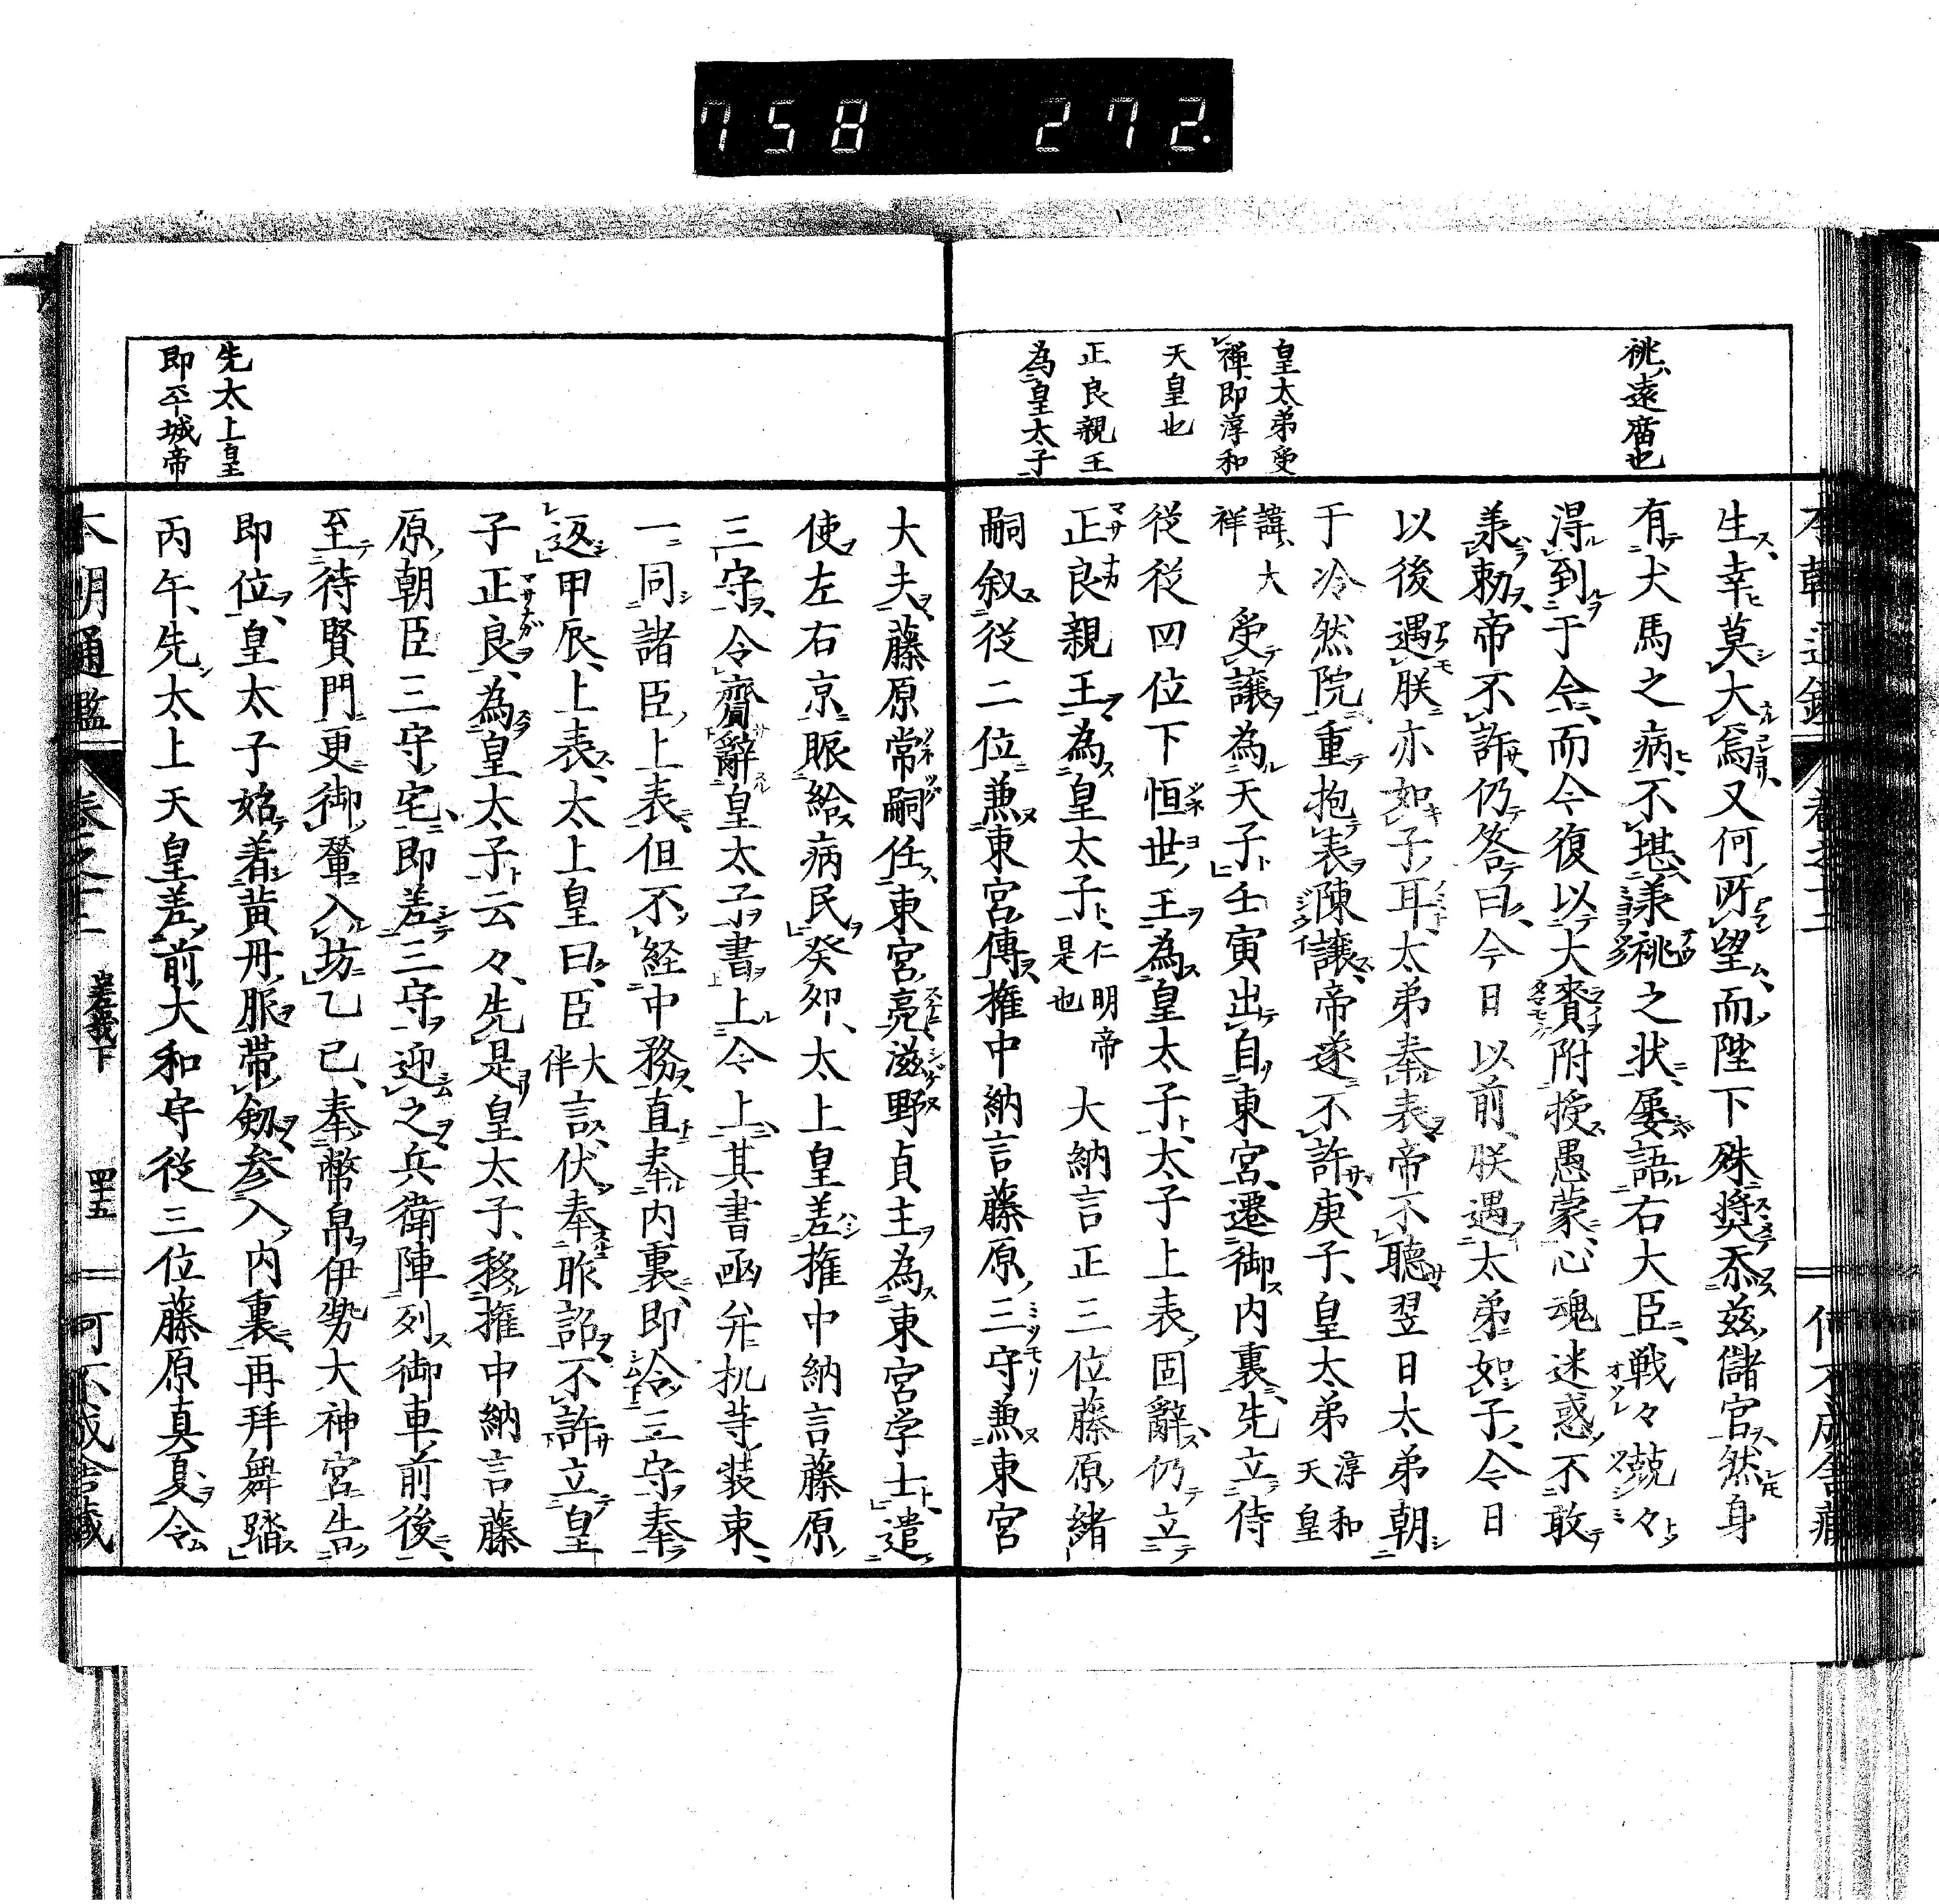 758 272.
祧遠廟也
皇太弟受
禅即淳和
天皇也
正良親王
為皇太子
生幸莫大焉又何所望而陛下殊奬忝兹儲宮然身
有犬馬之病不堪羕祧之状屡語右大臣戦々兢々
得到于今而今復以大賚附授愚蒙心魂迷惑不敢
羕勅帝不許仍答曰今日以前朕遇太弟如子今日
以後遇朕亦如子耳太弟奉表帝不聴翌日太弟朝
于冷然院重抱表陳譲帝遂不許庚子皇太弟淳和天皇
諱大祥受譲為天子壬寅出自東宮遷御内裏先立侍
従従四位下恒世王為皇太子太子上表固辭仍立
正良親王為皇太子仁明帝是也大納言正三位藤原緒
嗣叙従二位兼東宮傳権中納言藤原三守兼東宮
大夫藤原常嗣任東宮亮滋野貞主為東宮学士遣
使左右京賑給病民癸卯太上皇差権中納言藤原
三守令齎辭皇太子書上今上其書函弁机等装束
一同諸臣上表但不経中務直奉内裏即令三守奉
返甲辰上表太上皇曰臣大伴言伏奉昨詔不許立皇
子正良為皇太子云々先是皇太子移権中納言藤
原朝臣三守宅即差三守迎之兵衛陣列御車前後
至待賢門更御輦入坊乙巳奉幣帛伊勢大神宮告
即位皇太子始着黄丹服帯剱参入内裏再拜舞踏
丙午先太上天皇差前大和守従三位藤原真夏令
先太上皇
即平城帝
本朝通鑑 巻之十二 嵯峨下 四十五 何不成舎蔵